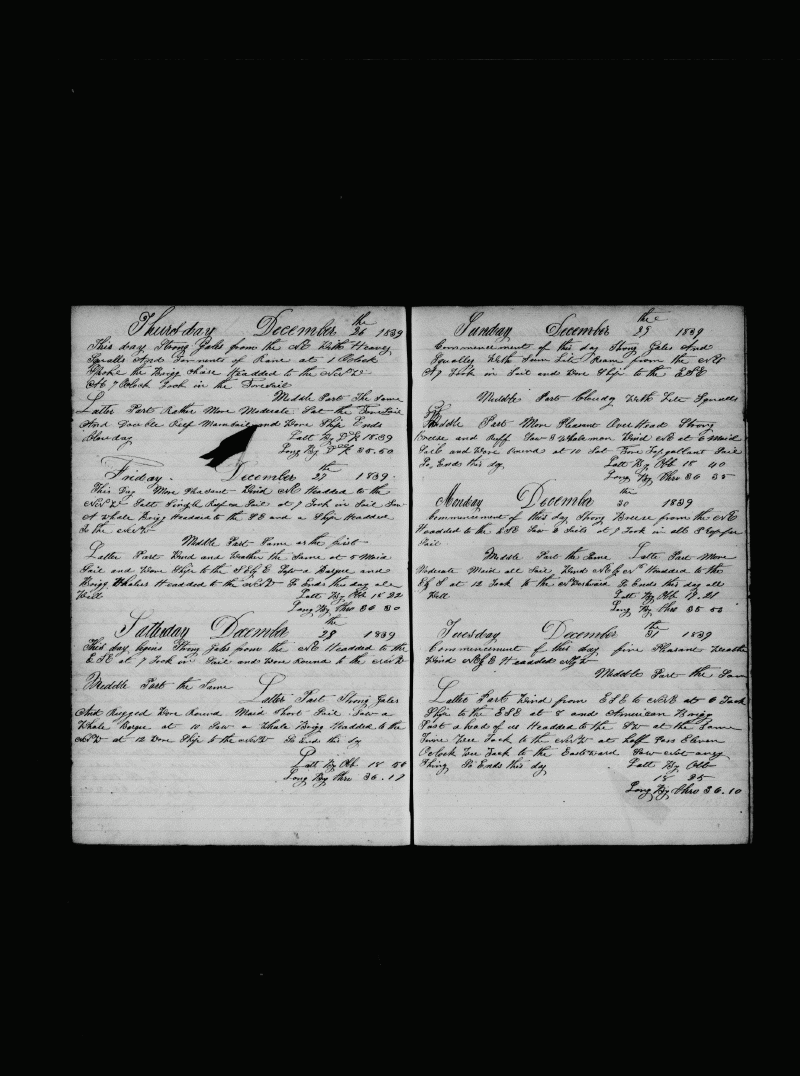 Thursday December the 26 1839
This day Strong Gales from the NE With Heavey
Squalls And Torrents of Rane at 1 Oclock
Spoke the Brigg Chase Headded to the NNW
At 7 Oclock Took in the Foresail
Middle Part The Same
Latter Part Rather More Moderate Sat the Foresail
And Double Reef Mainsail and Wore Ship Ends
Clouday
Latt By DR 18.39
Long By DR 35.50
Friday December the 27 1839
This Day More Pleasent Wind NE Headded to the
NNW Satt Single Reef Sail at 7 Took in Sail Saw
A Whale Brigg Headded to the SE and a Ship Headded
To the NNW
Middle Part Same as the first
Latter Part Wind and Weather the Same at 5 Maid
Sail and Wore Ship to the SEbyE Saw a Barque and
Brigg Whalers Headded to the NNW So Ends this day all
Well
Latt By Ob 18 22
Long By Chro 36 30
Satterday December the 28 1839
This day begins Strong Gales from the NE Headded to the
ESE at 7 Took in Sail and Wore Round to the NNW
Middle Part the Same
Latter Part Strong Gales
And Rugged Wore Round Maid Short Sail Saw a
Whale Barque at 10 Saw a Whale Brigg Headded to the
NNW at 12 Wore Ship to the NNW So Ends this day
Latt By Ob 18 50
Long By Chro 36.17
Sunday December the 29 1839
Commencement of this day Strong Gales And
Squally With Sum Litl Rean from the NE
At 7 Took in Sail and Wore Ship to the ESE
Middle Part Cloudy With Litle Squalls
Middle Part More Pleasent Over Head Strong
Breese and Ruff Saw 3 Whaleman Wind NE at 6 Maid
Sail and Wore Round at 10 Sat Fore Topgallant Sail
So Ends this day
Latt By Ob 18 40
Long By Chro 36 35
Monday December the 30 1839
Commencement of this day Strong Breese from the NE
Headded to the ESE Saw 2 Sails at 7 Took in all Sail
Middle Part the Same Latter Part More
Moderate Maid all Sail Wind NEbyN Headded to the
EbyS at 12 Tack to the Norward So Ends this day all
Well
Latt By Ob 18.21
Long By Chro 35 53
Tuesday December the 31 1839
Commencement of this day fine Pleasent Weather
Wind NEbyE Headded
Middle Part the Same
Latter Part Wind from ESE to NNE at 6 Tack
Ship to the ESE at 8 and American Brigg
Past a head of us Headded to the SW at the Same
Time Wee Tack to the NNW at haff Pass Eleven
Oclock Wee Tack to the Eastward Saw Not aney
Thing So Ends this day
Latt By Ob
18 25
Long By Chro 36.10